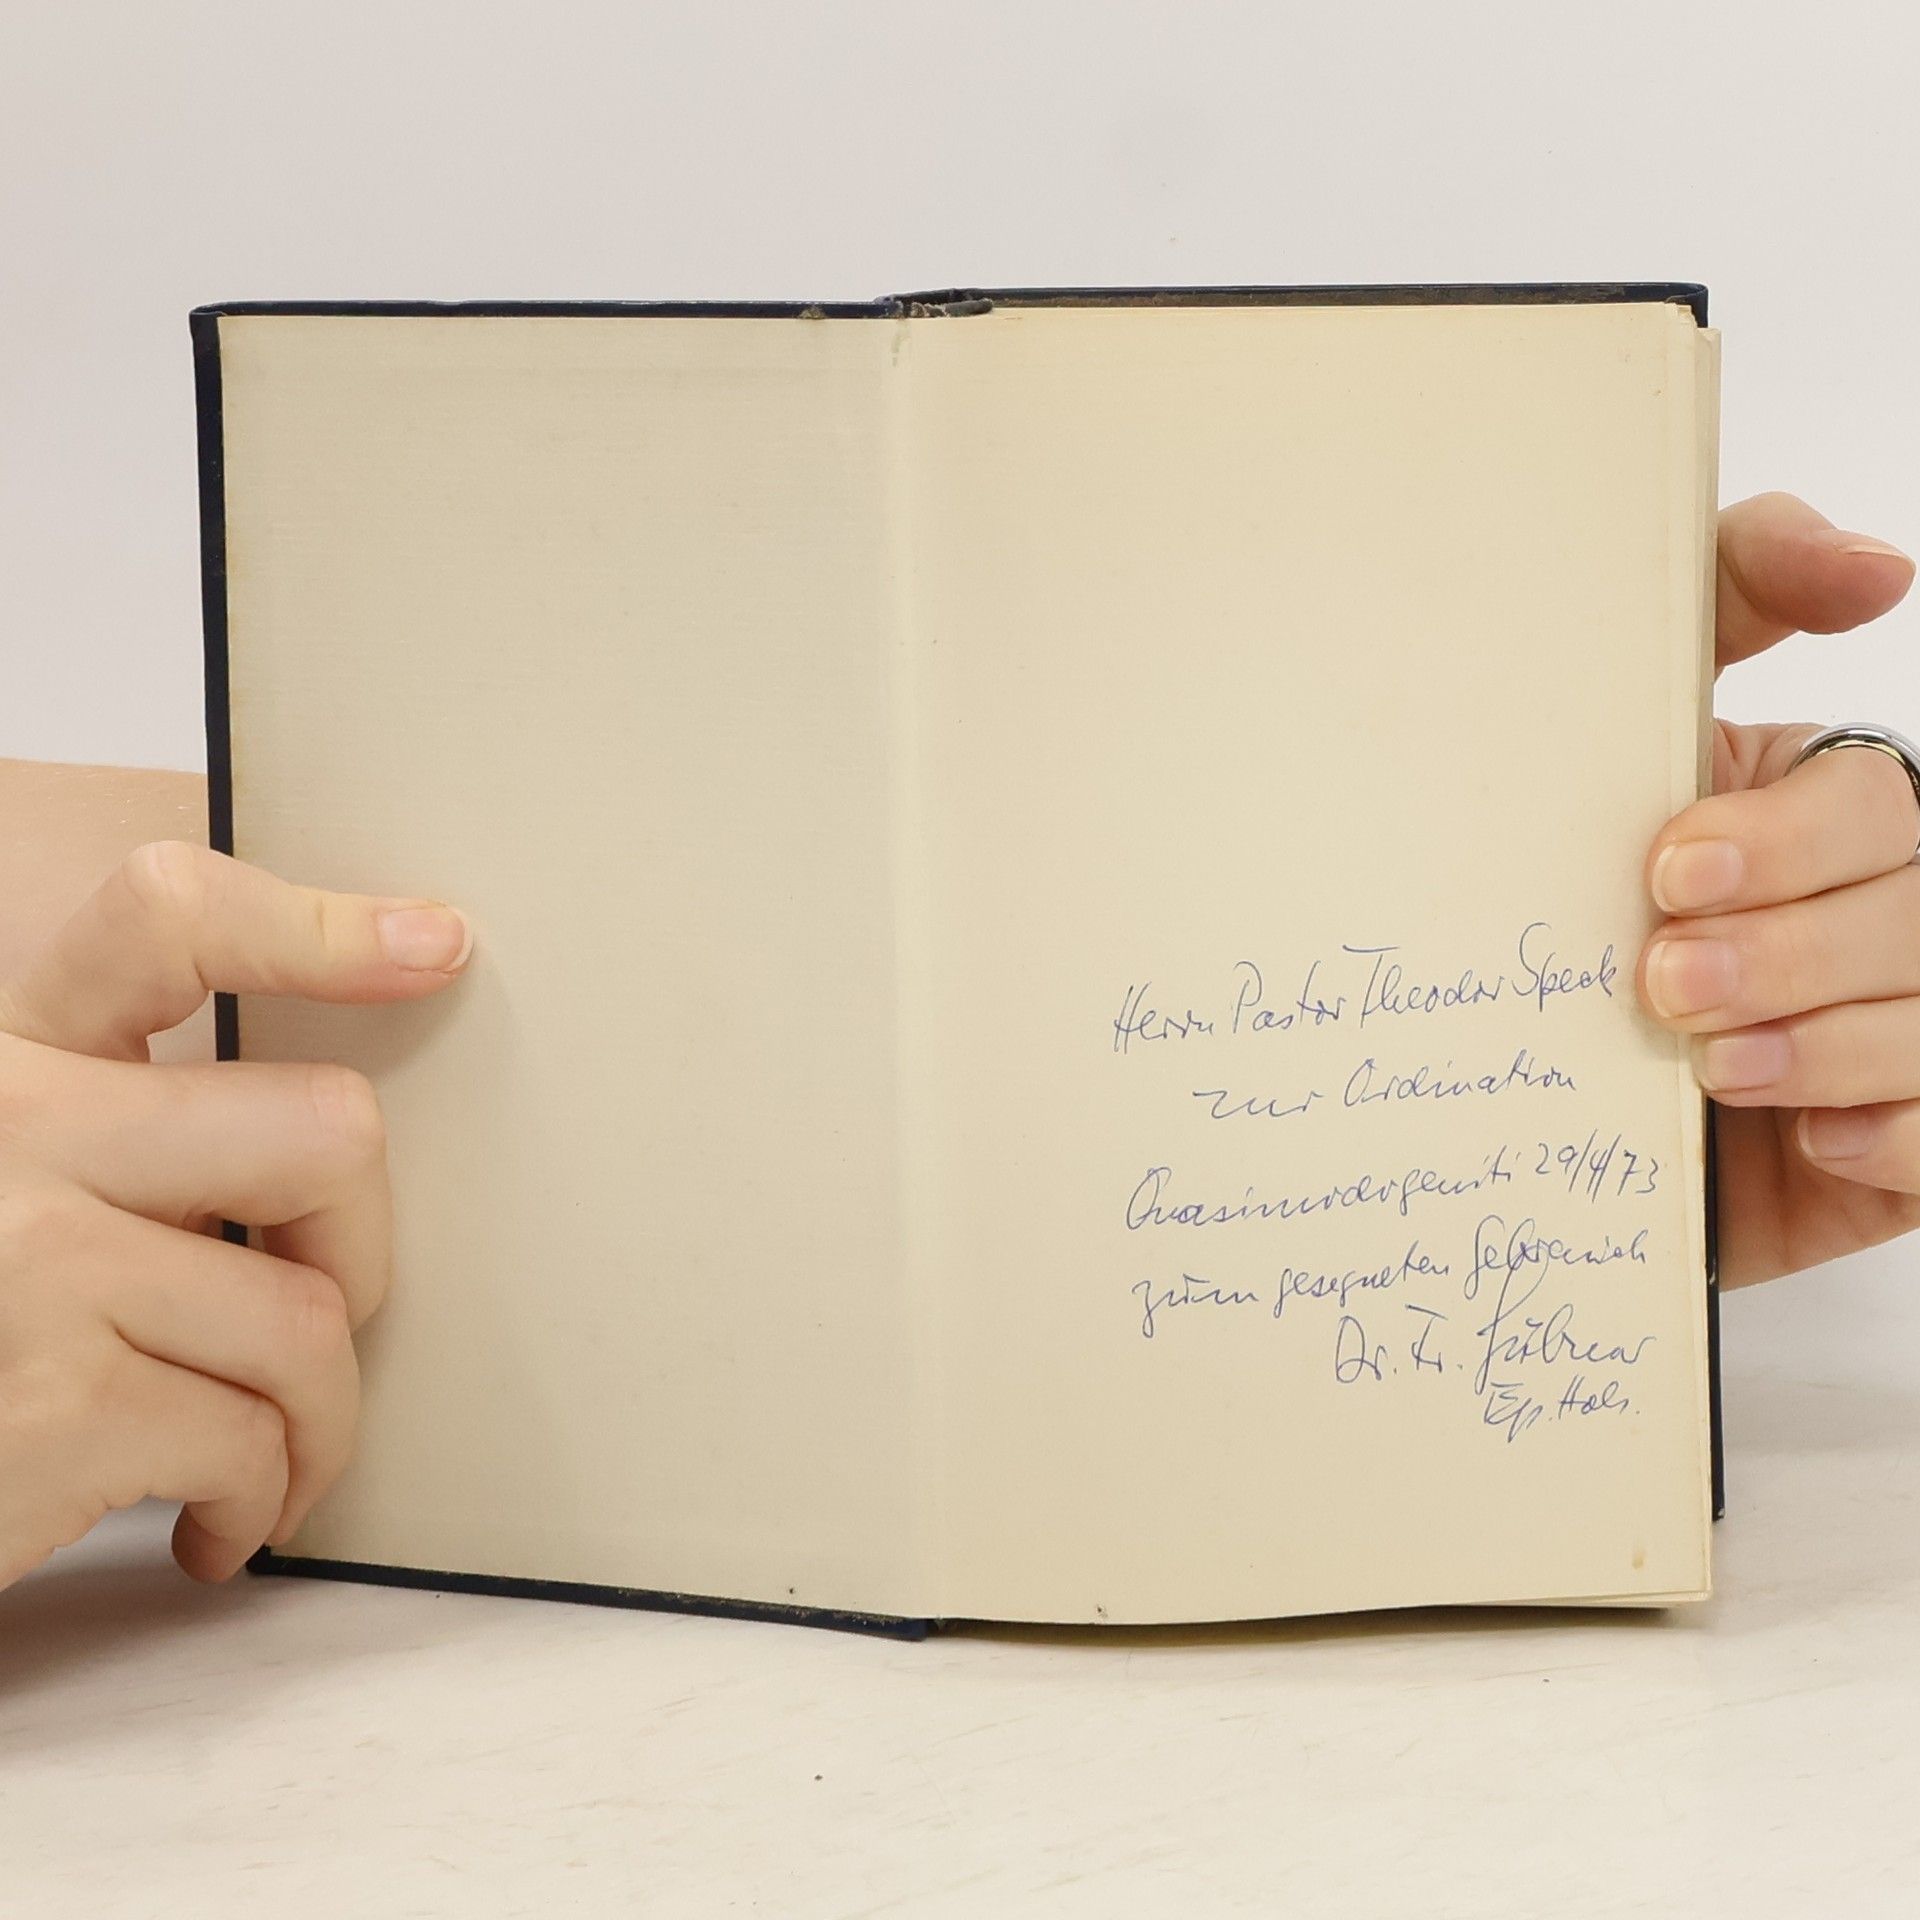 Herrn Pastor Theodor Speck
zur Ordination
Quasimodogeniti 29/4/73
zum gesegneten Gebrauch
Dr. Fr. Hübner
Ep. Hols.